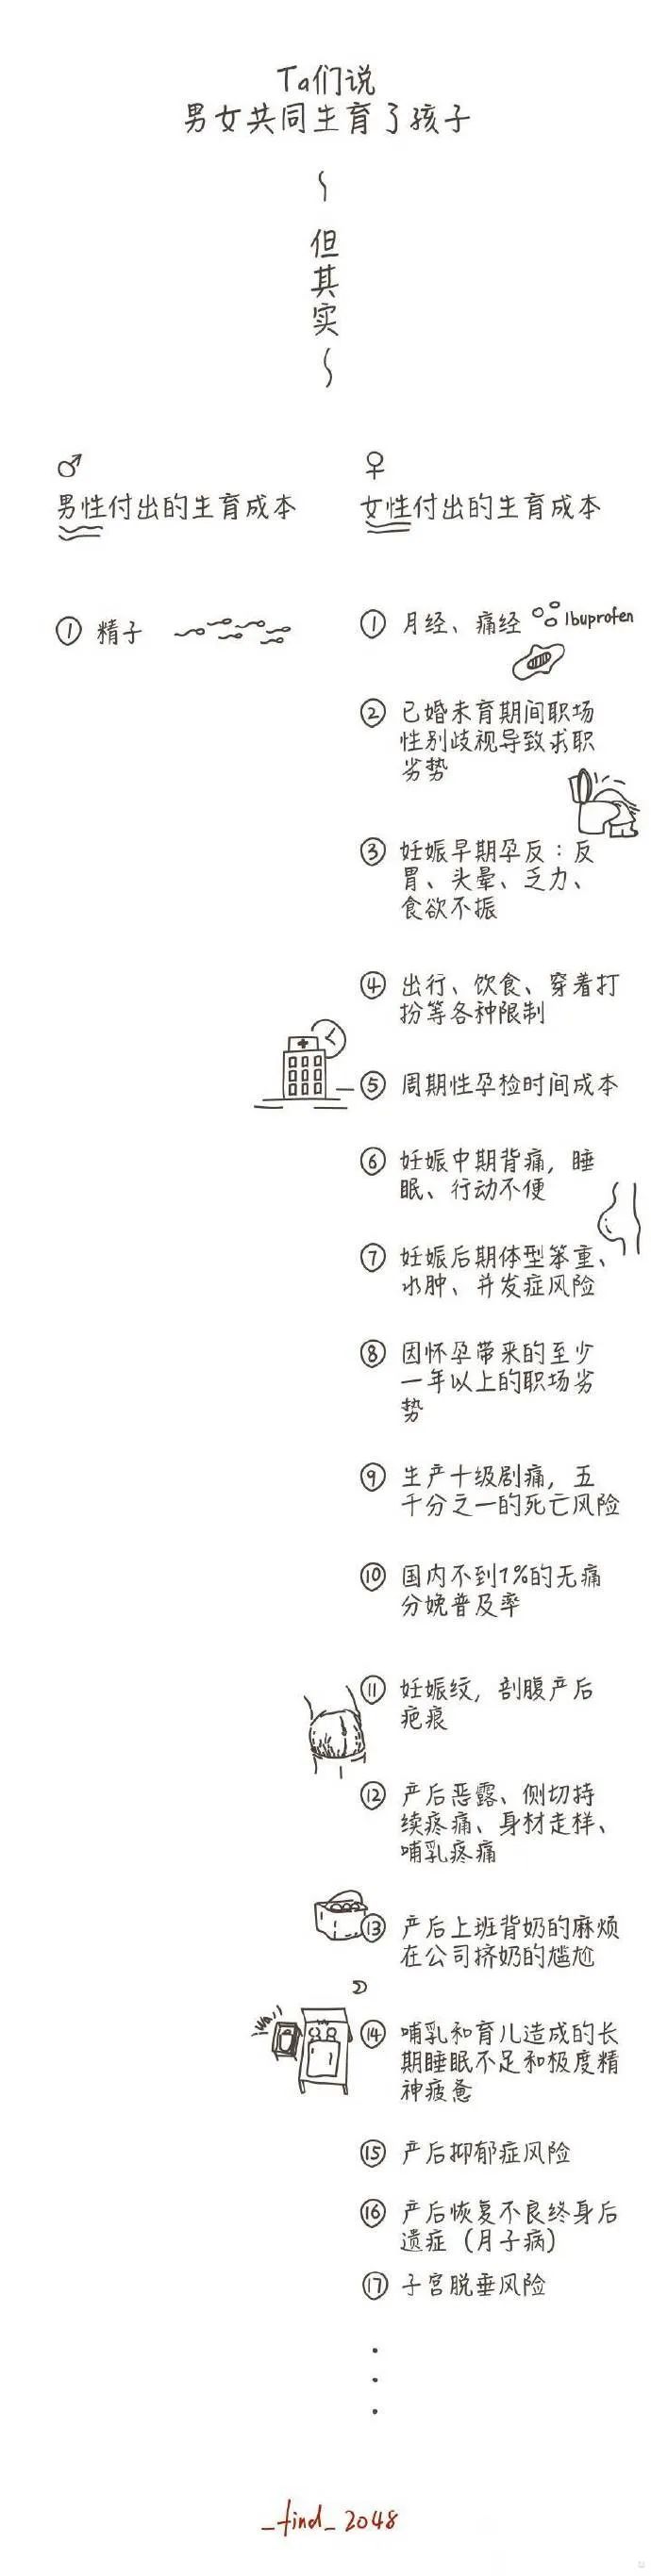 Ta们说
男女共同生育了孩子
但其实
♂
男性付出的生育成本
① 精子
♀
女性付出的生育成本
① 月经、痛经
Ibuprofen
② 已婚未育期间职场
性别歧视导致求职
劣势
③ 妊娠早期孕反:反
胃、头晕、乏力、
食欲不振
④ 出行、饮食、穿着打
扮等各种限制
⑤ 周期性孕检时间成本
⑥ 妊娠中期背痛,睡
眠、行动不便
⑦ 妊娠后期体型笨重、
水肿、并发症风险
⑧ 因怀孕带来的至少
一年以上的职场劣
势
⑨ 生产十级剧痛,五
千分之一的死亡风险
⑩ 国内不到1%的无痛
分娩普及率
⑪ 妊娠纹,剖腹产后
疤痕
⑫ 产后恶露、侧切持
续疼痛、身材走样、
哺乳疼痛
⑬ 产后上班背奶的麻烦
在公司挤奶的尴尬
⑭ 哺乳和育儿造成的长
期睡眠不足和极度精
神疲惫
⑮ 产后抑郁症风险
⑯ 产后恢复不良终身后
遗症(月子病)
⑰ 子宫脱垂风险
_find_2048